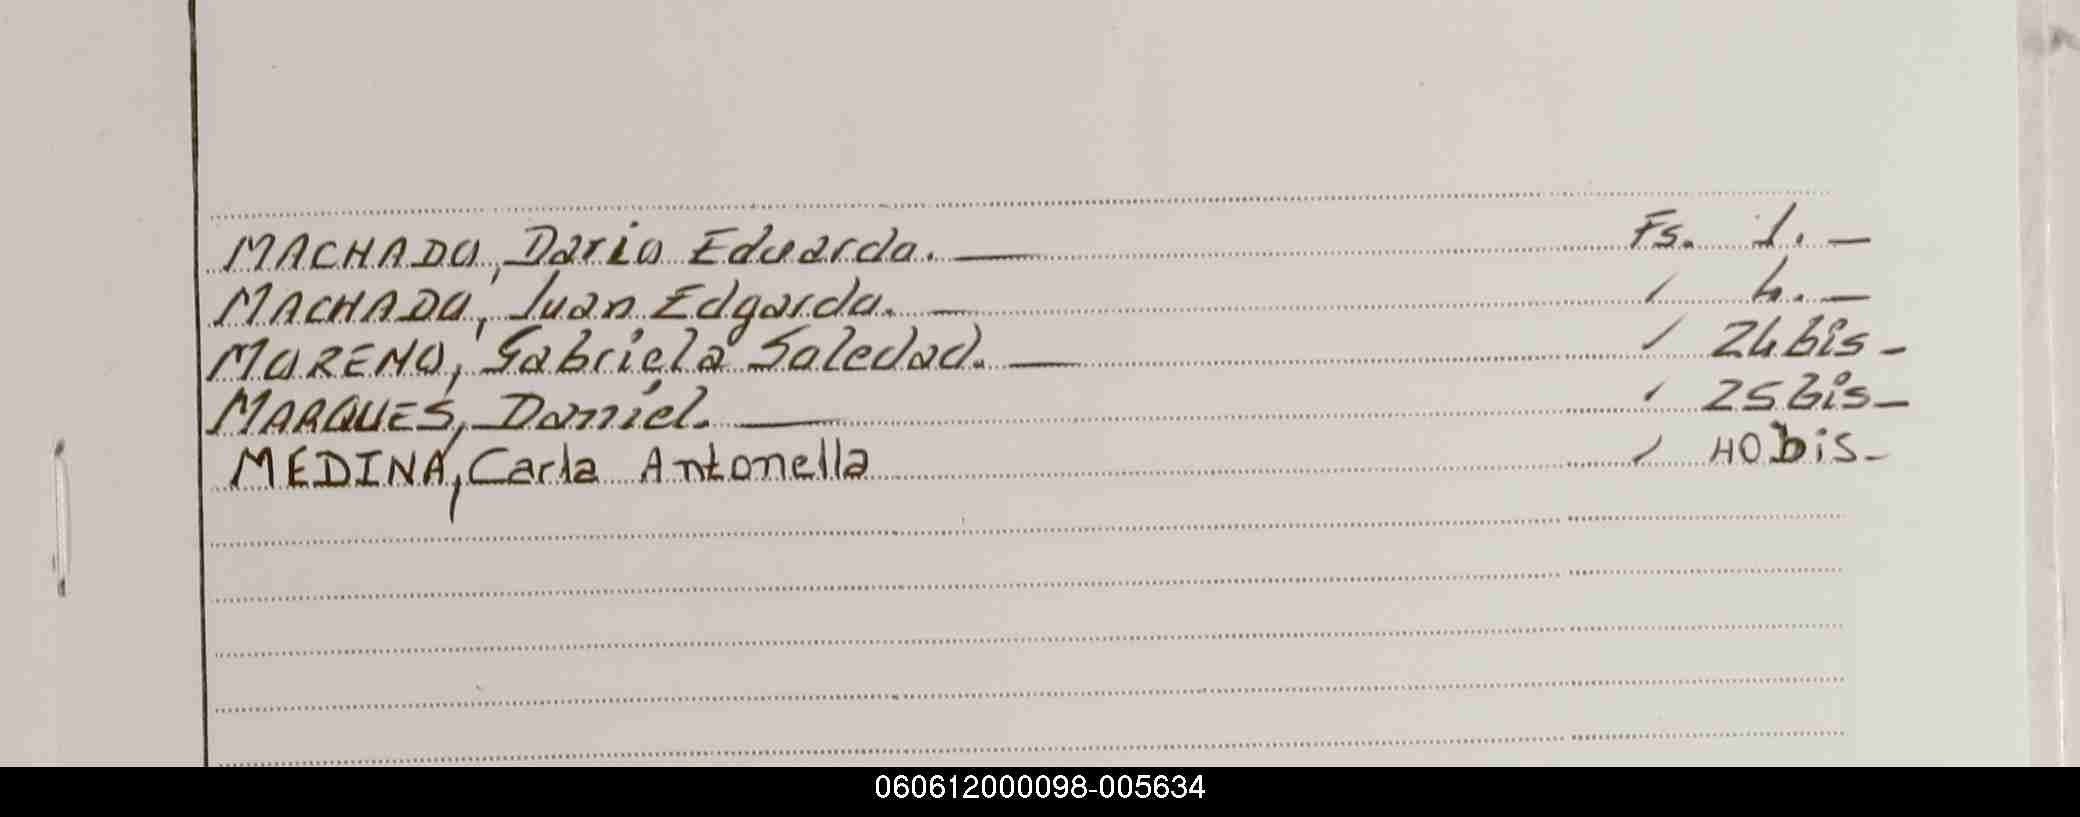 MACHADO, Dario Eduardo. — Fs. 1. —
MACHADO, Juan Edgardo. — " 4. —
MORENO, Gabriela Soledad. — " 24 bis -
MARQUES, Daniel. — " 25 bis -
MEDINA, Carla Antonella " 40 bis -
060612000098-005634